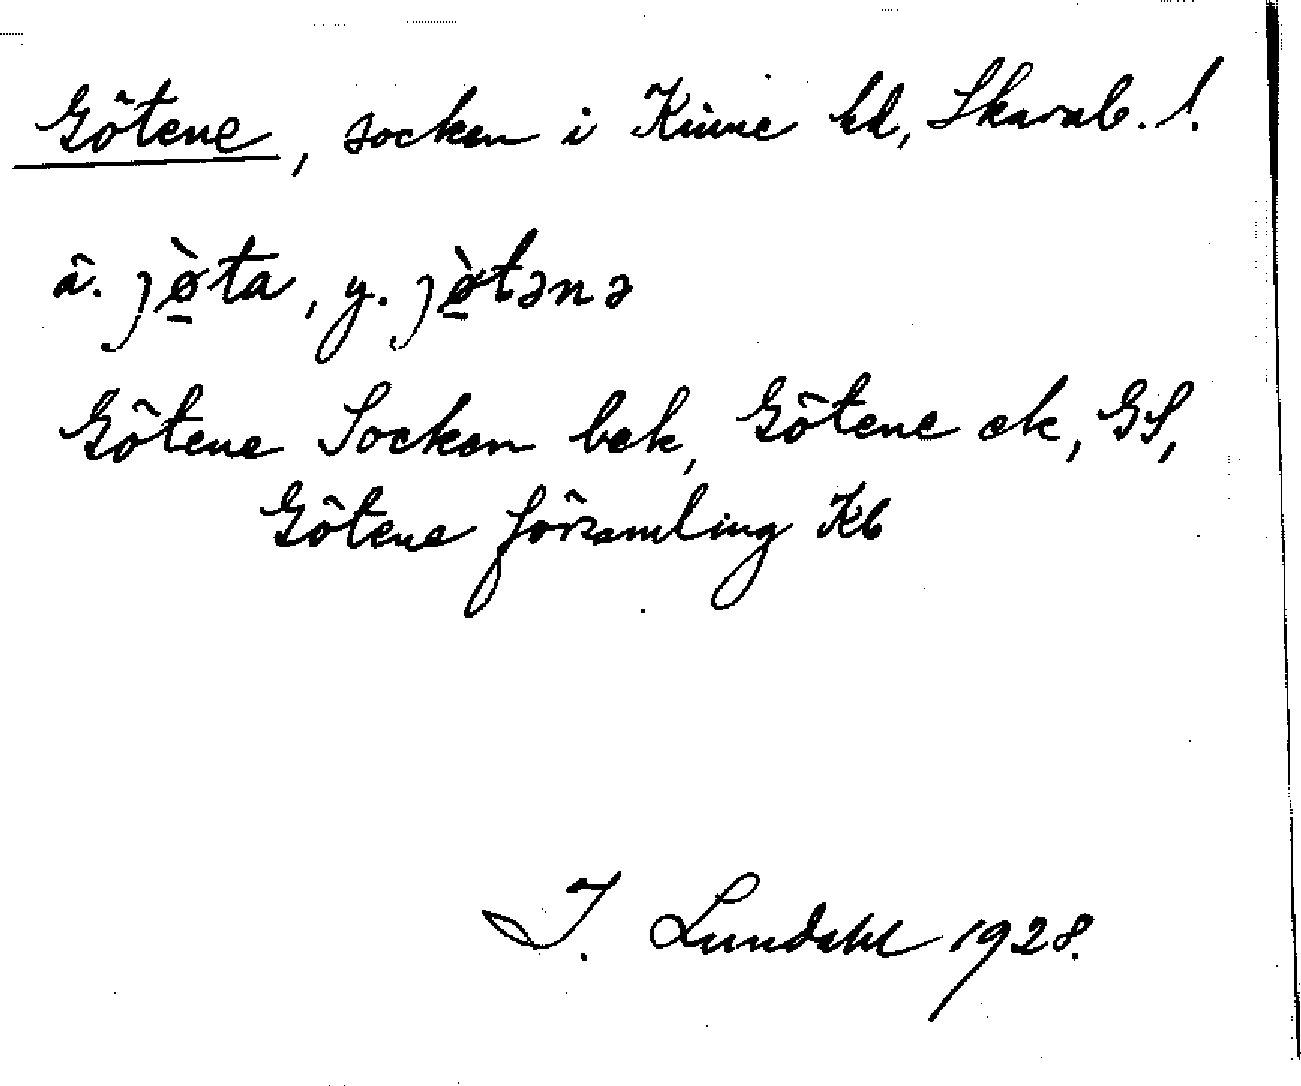 Götene, socken i Kinne hd, Skarab. l.
ä. jø̱̀ta, y. jø̱̀tənə
Götene Socken bek, Götene ek, GS,
Götene församling Kb
I. Lundahl 1928.